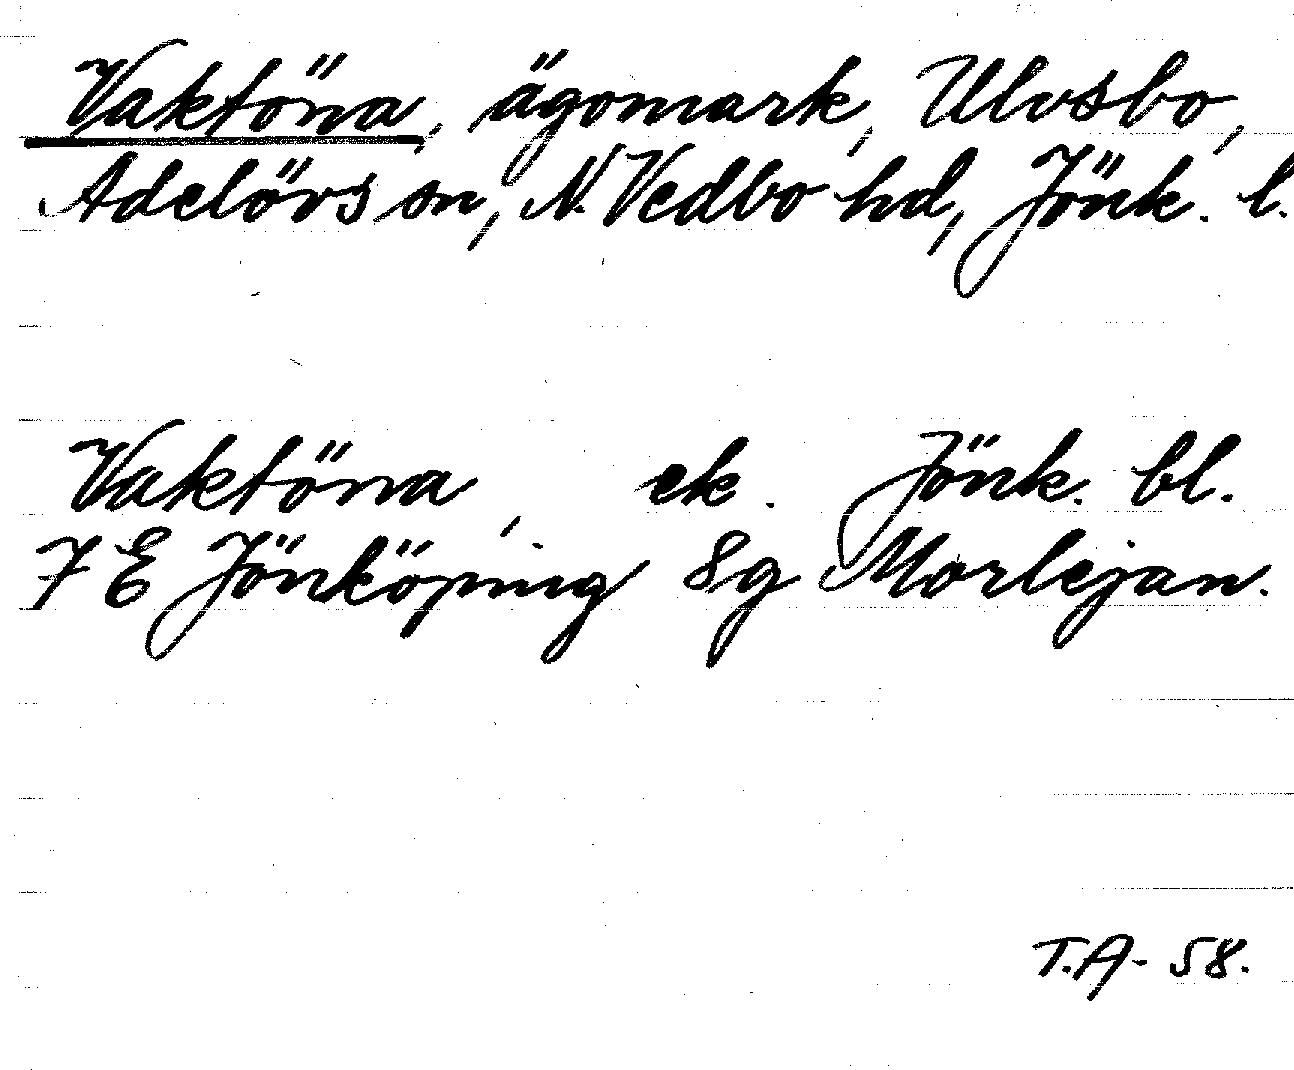 Vaktöna, ägomark, Ulvsbo,
Adelövs sn, N. Vedbo hd, Jönk. l.
Vaktöna, ek. Jönk. bl.
7 E Jönköping 8g Morlejan.
T.A- 58.